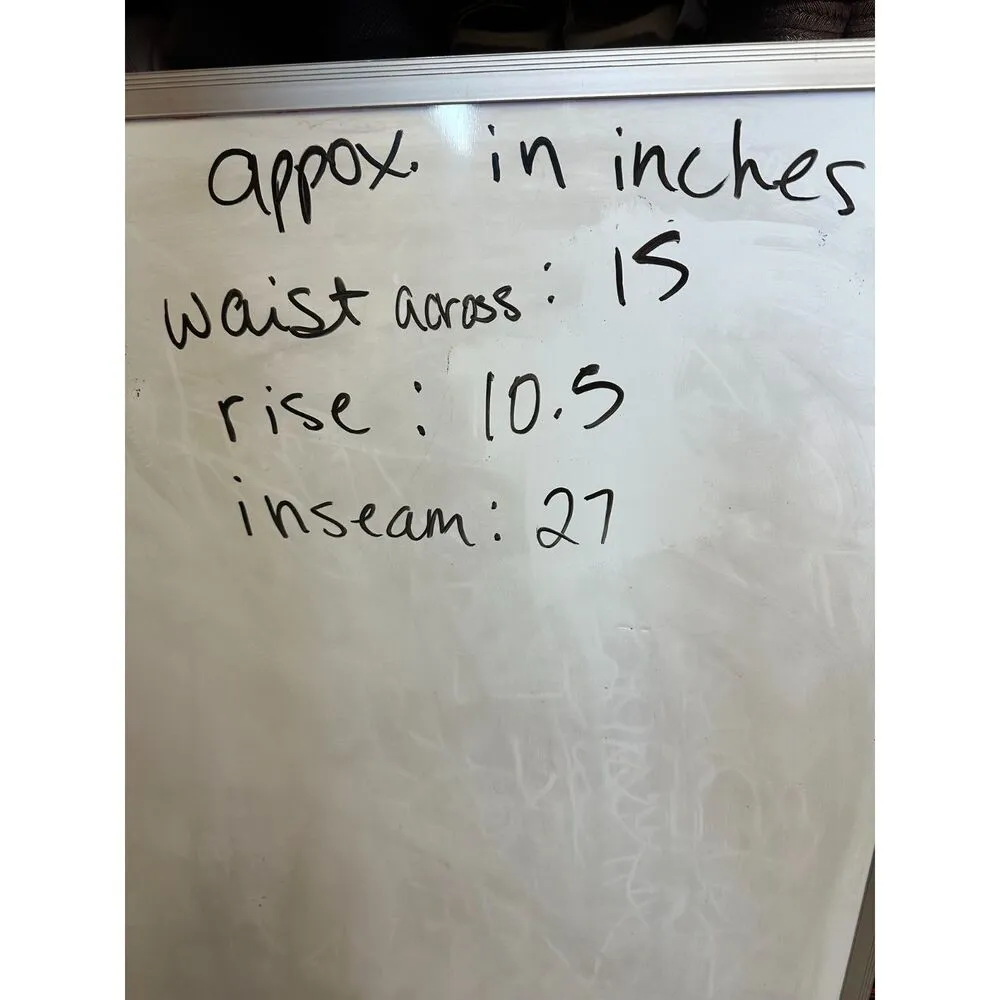 appox. in inches
waist across: 15
rise: 10.5
inseam: 27